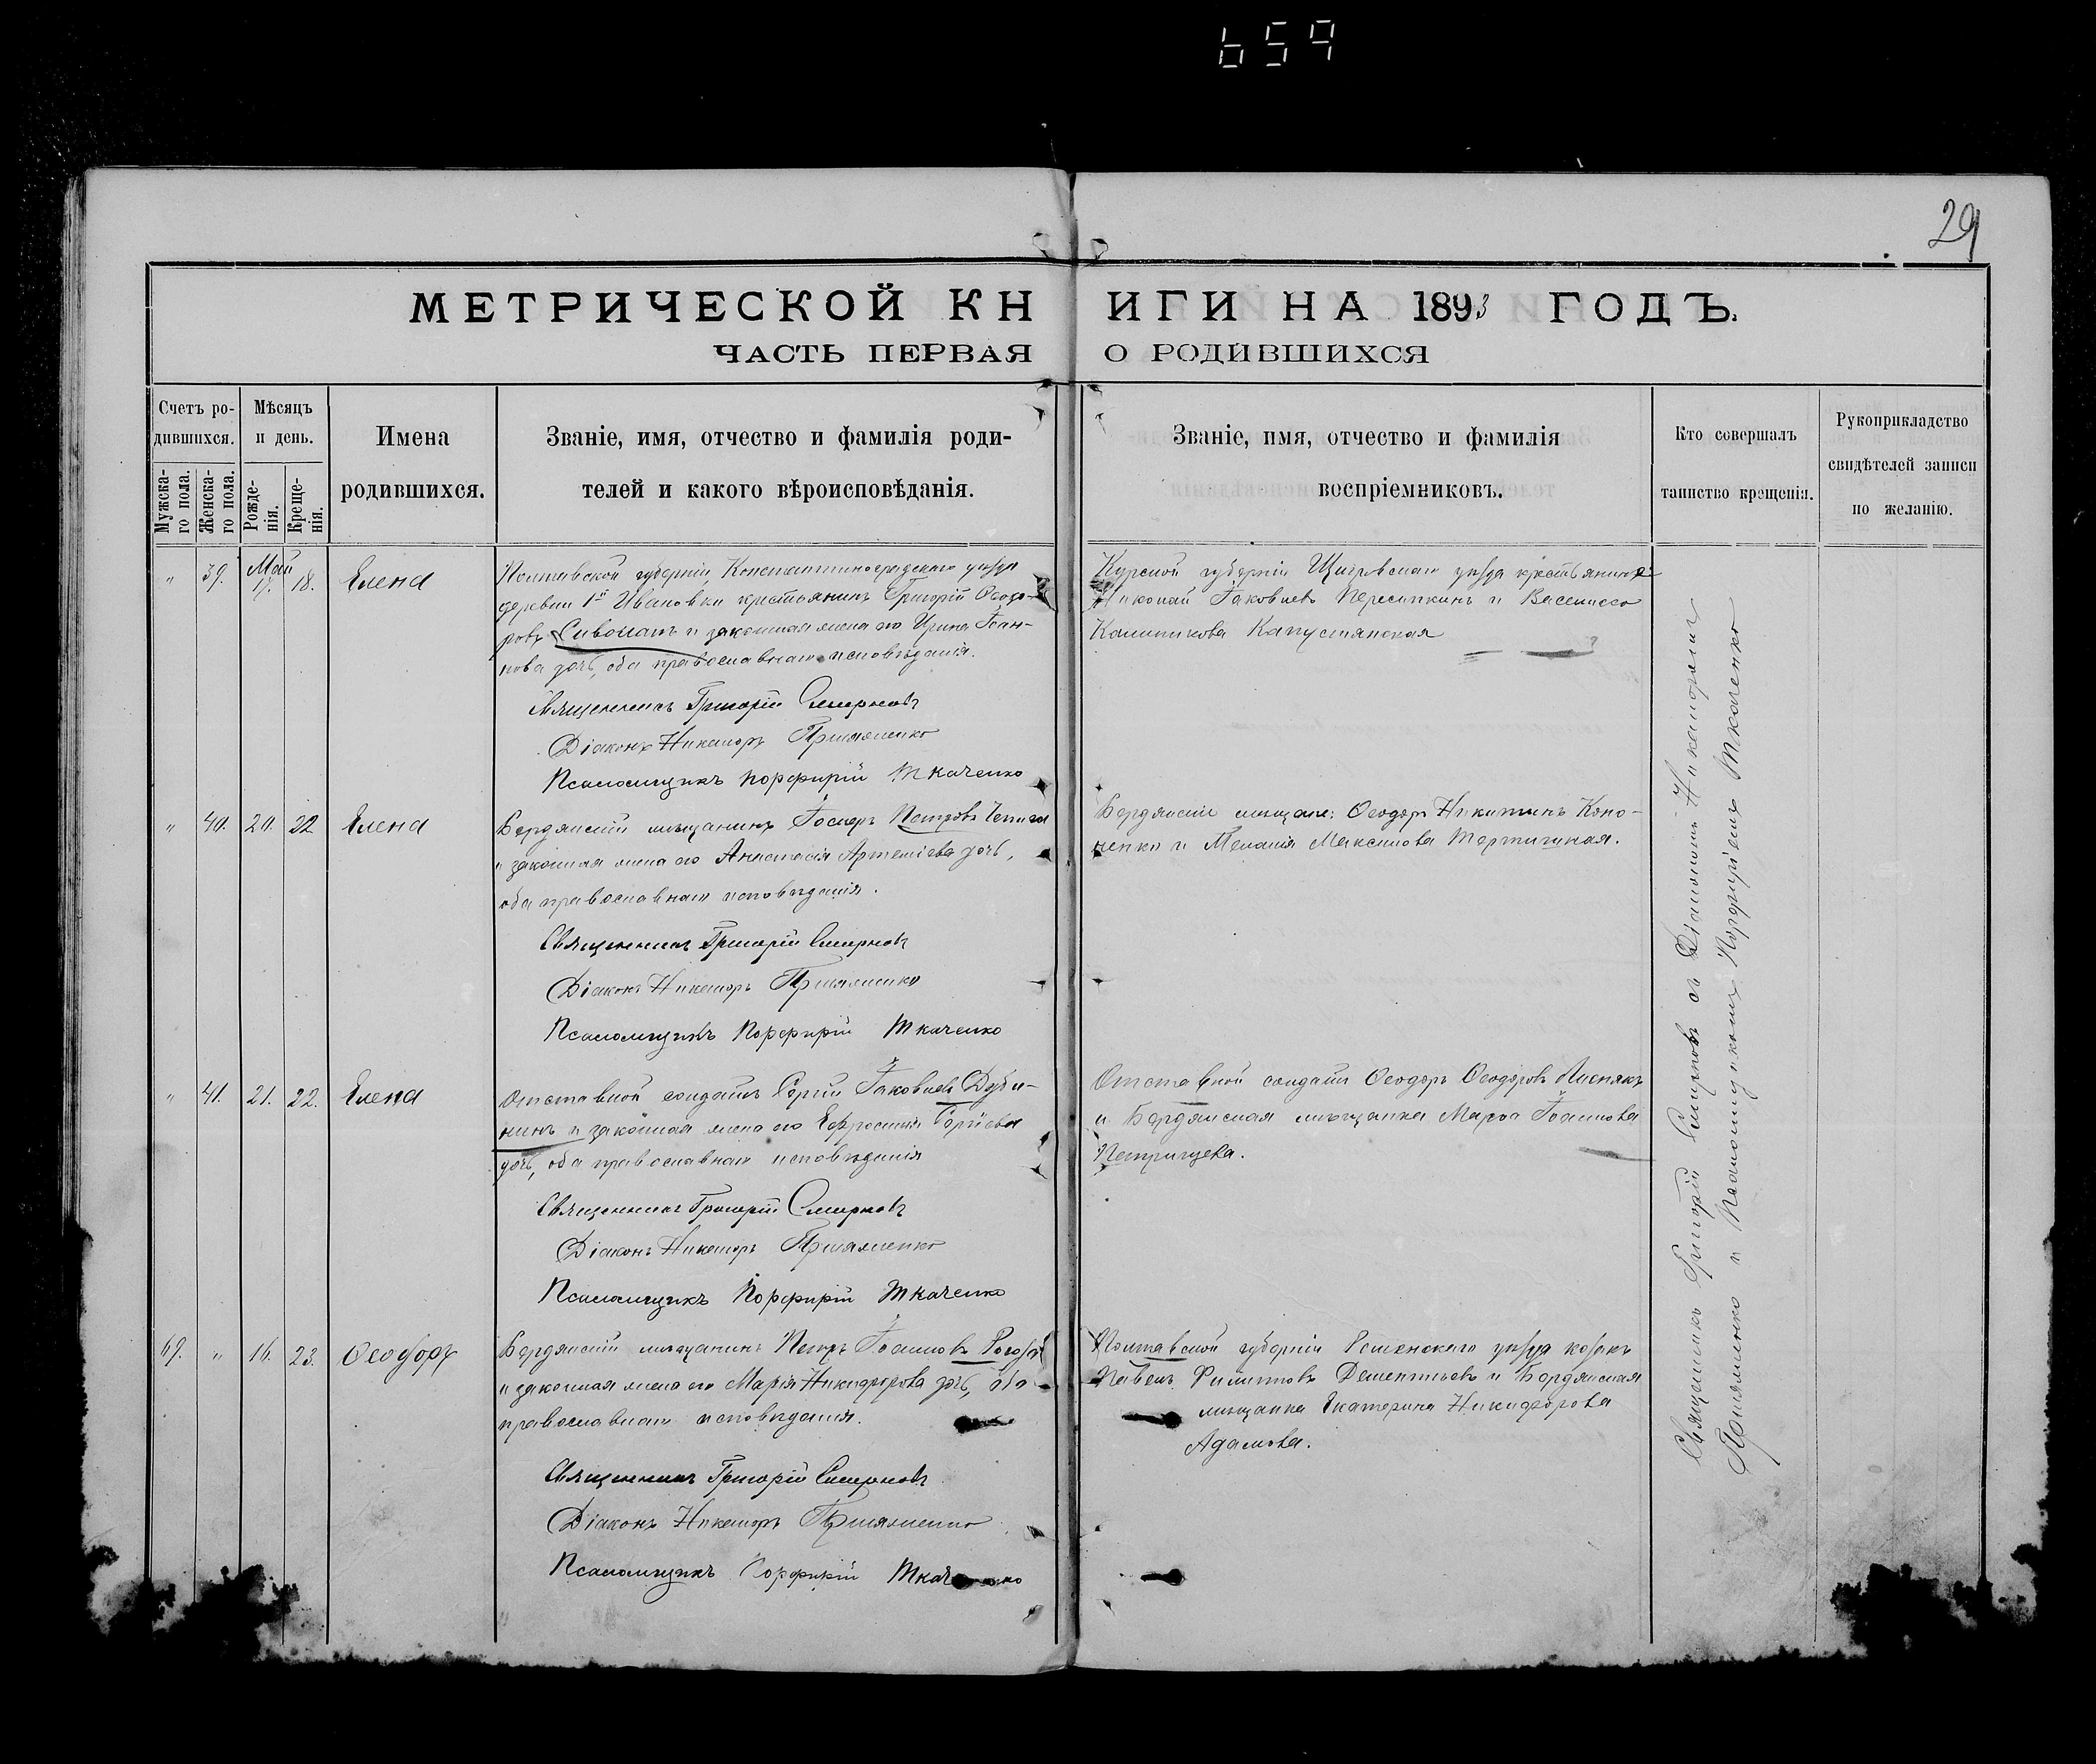 659
29
МЕТРИЧЕСКОЙ КНИГИ НА 1893 ГОДЪ.
ЧАСТЬ ПЕРВАЯ О РОДИВШИХСЯ
Счетъ ро-
дившихся.
Мужска-
го пола.
Женска-
го пола.
Мѣсяцъ
и день.
Рожде-
нія.
Креще-
нія.
Имена
родившихся.
Званіе, имя, отчество и фамилія роди-
телей и какого вѣроисповѣданія.
Званіе, имя, отчество и фамилія
воспріемниковъ.
Кто совершалъ
таинство крещенія.
Рукоприкладство
свидѣтелей записи
по желанію.
" 39. Май 17. 18. Елена
Полтавской губерніи, Константиноградскаго уѣзда
деревни 1й Ивановки крестьянинъ Григорій Ѳеодо-
ровъ и законная жена его Ирина Іоан-
нова дочь, оба православнаго исповѣданія.
Священникъ Григорій Смирновъ
Діаконъ Никаноръ
Псаломщикъ Порфирій Ткаченко
Курской губерніи Щигровскаго уѣзда крестьянинъ
Николай Іаковлевъ Пересыпкинъ и Василисса
Калинникова Капустянская
" 40. 20. 22 Елена
Бердянскій мѣщанинъ Петровъ
и законная жена его Анастасія Артеміева дочь,
оба православнаго исповѣданія.
Священникъ Григорій Смирновъ
Діаконъ Никаноръ
Псаломщикъ Порфирій Ткаченко
Бердянскіе мѣщане: Ѳеодоръ Никитинъ Коно-
ненко и Меланія Максимова
" 41. 21. 22. Елена
Отставной солдатъ Сергій Іаковлевъ Дуби-
нинъ и законная жена его Ефросинія
дочь, оба православнаго исповѣданія
Священникъ Григорій Смирновъ
Діаконъ Никаноръ
Псаломщикъ Порфирій Ткаченко
Отставной солдатъ Ѳеодоръ Ѳеодоровъ Лиснякъ
и Бердянская мѣщанка Марѳа Іоаннова
Петрищева.
69. " 16. 23. Ѳеодоръ
Бердянскій мѣщанинъ Петръ Іоанновъ
и законная жена его Марія Никифорова дочь, оба
православнаго исповѣданія.
Священникъ Григорій Смирновъ
Діаконъ Никаноръ
Псаломщикъ Порфирій Ткаченко
Полтавской губерніи Роменскаго уѣзда козакъ
Павелъ Филипповъ Дементьевъ и Бердянская
мѣщанка Екатерина Никифорова
Адамова.
Священникъ Григорій Смирновъ съ Діакономъ Никаноромъ
и Псаломщикомъ Порфиріемъ Ткаченко